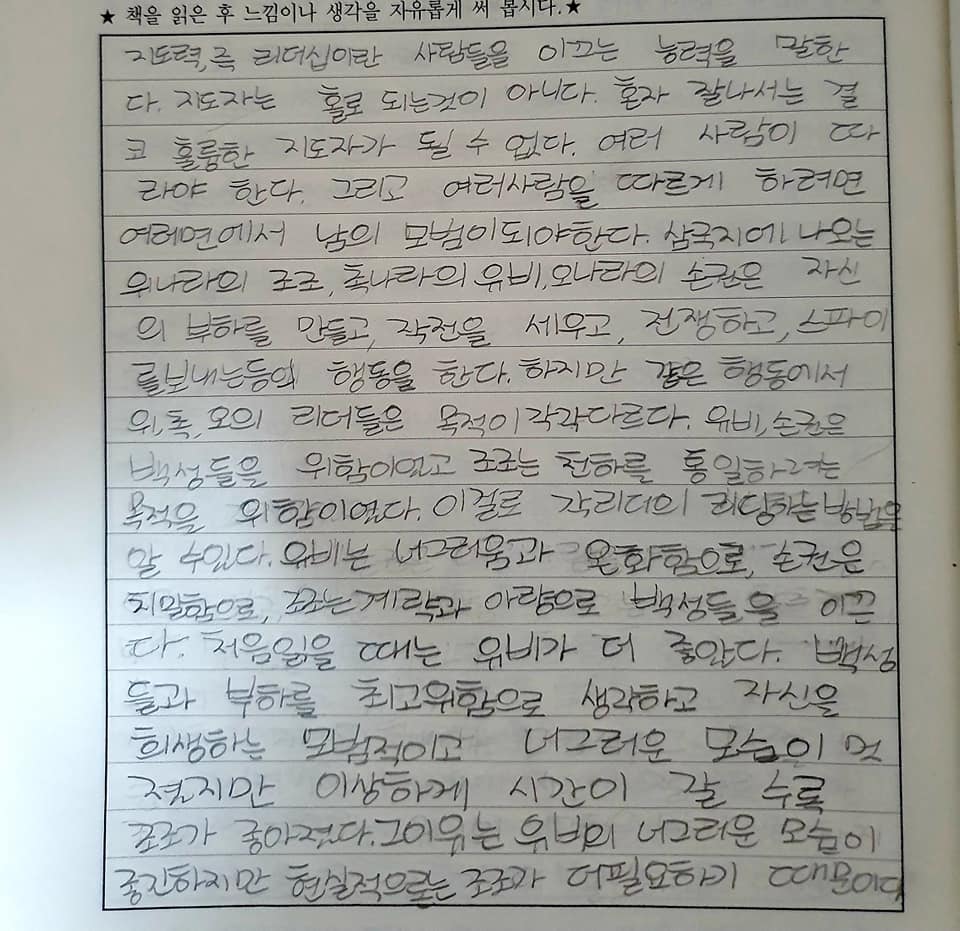 ★ 책을 읽은 후 느낌이나 생각을 자유롭게 써 봅시다.★
지도력,즉 리더십이란 사람들을 이끄는 능력을 말한
다. 지도자는 홀로 되는것이 아니다. 혼자 잘나서는 결
코 훌륭한 지도자가 될 수 없다. 여러 사람이 따
라야 한다. 그리고 여러사람을 따르게 하려면
여러면에서 남의 모범이되야한다. 삼국지에 나오는
위나라의 조조, 촉나라의 유비,오나라의 손권은 자신
의 부하를 만들고, 작전을 세우고, 전쟁하고, 스파이
를보내는등의 행동을 한다. 하지만 같은 행동에서
위,촉,오의 리더들은 목적이 각각다르다. 유비,손권은
백성들을 위함이였고 조조는 천하를 통일하려는
목적을 위함이였다. 이걸로 각리더의 리딩하는방법을
알 수있다. 유비는 너그러움과 온화함으로, 손권은
치밀함으로, 조조는 계략과 아량으로 백성들을 이끈
다. 처음읽을 때는 유비가 더 좋았다. 백성
들과 부하를 최고위함으로 생각하고 자신을
희생하는 모범적이고 너그러운 모습이 멋
졌지만 이상하게 시간이 갈 수록
조조가 좋아졌다.그이유는 유비의 너그러운 모습이
좋긴하지만 현실적으로는 조조가 더필요하기 때문이다.